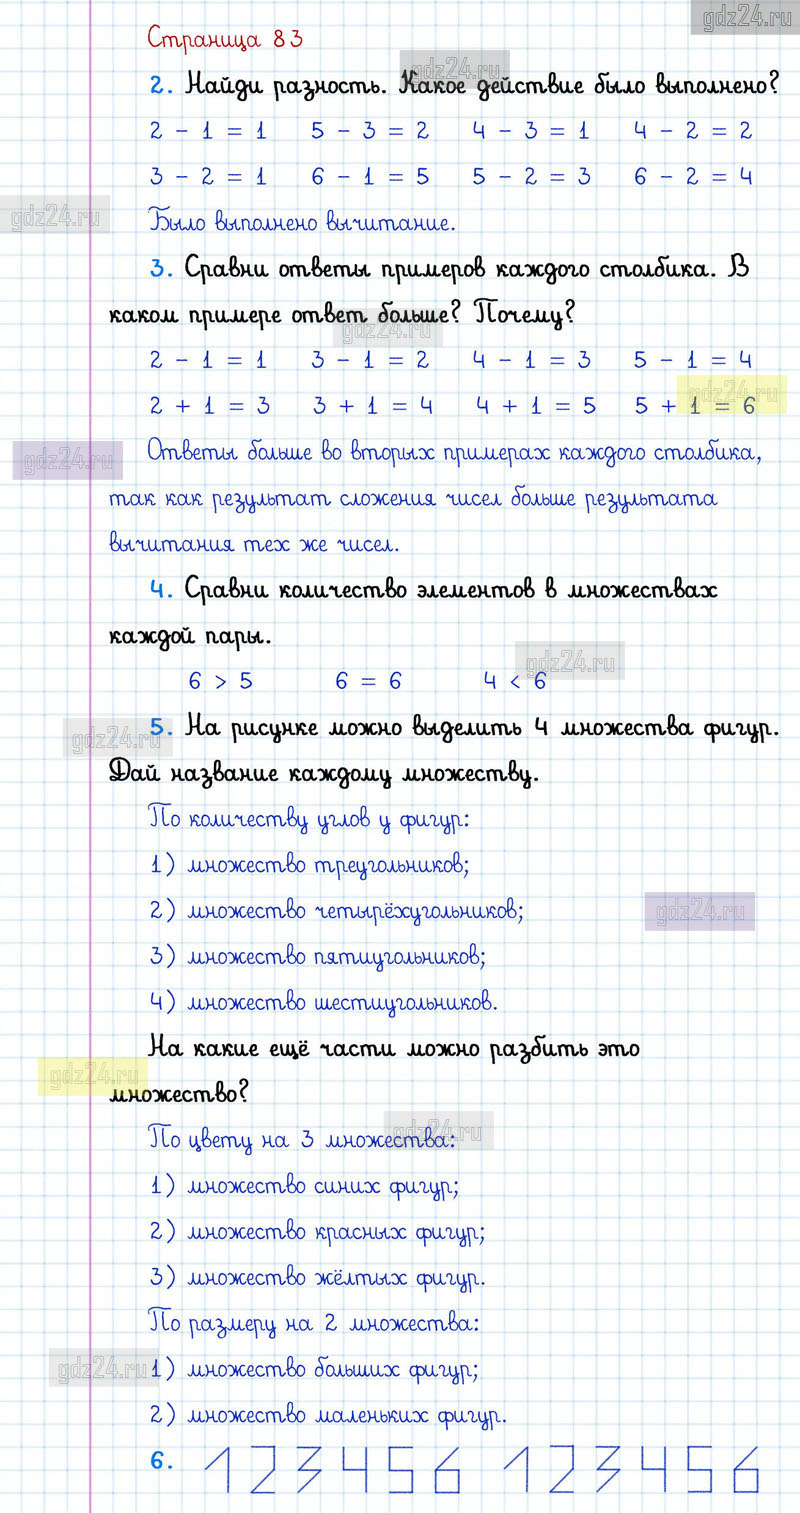 gdz24.ru
Страница 83
gdz24.ru
2. Найди разность. Какое действие было выполнено?
2 - 1 = 1 5 - 3 = 2 4 - 3 = 1 4 - 2 = 2
3 - 2 = 1 6 - 1 = 5 5 - 2 = 3 6 - 2 = 4
gdz24.ru
Было выполнено вычитание.
3. Сравни ответы примеров каждого столбика. В
каком примере ответ больше? Почему?
gdz24.ru
2 - 1 = 1 3 - 1 = 2 4 - 1 = 3 5 - 1 = 4
gdz24.ru
2 + 1 = 3 3 + 1 = 4 4 + 1 = 5 5 + 1 = 6
Ответы больше во вторых примерах каждого столбика,
gdz24.ru
так как результат сложения чисел больше результата
вычитания тех же чисел.
4. Сравни количество элементов в множествах
каждой пары.
gdz24.ru
6 > 5 6 = 6 4 < 6
5. На рисунке можно выделить 4 множества фигур.
gdz24.ru
Дай название каждому множеству.
По количеству углов у фигур:
1) множество треугольников;
2) множество четырёхугольников;
gdz24.ru
3) множество пятиугольников;
4) множество шестиугольников.
На какие ещё части можно разбить это
gdz24.ru
множество?
gdz24.ru
По цвету на 3 множества:
1) множество синих фигур;
2) множество красных фигур;
3) множество жёлтых фигур.
По размеру на 2 множества:
gdz24.ru
1) множество больших фигур;
2) множество маленьких фигур.
6. 1 2 3 4 5 6 1 2 3 4 5 6